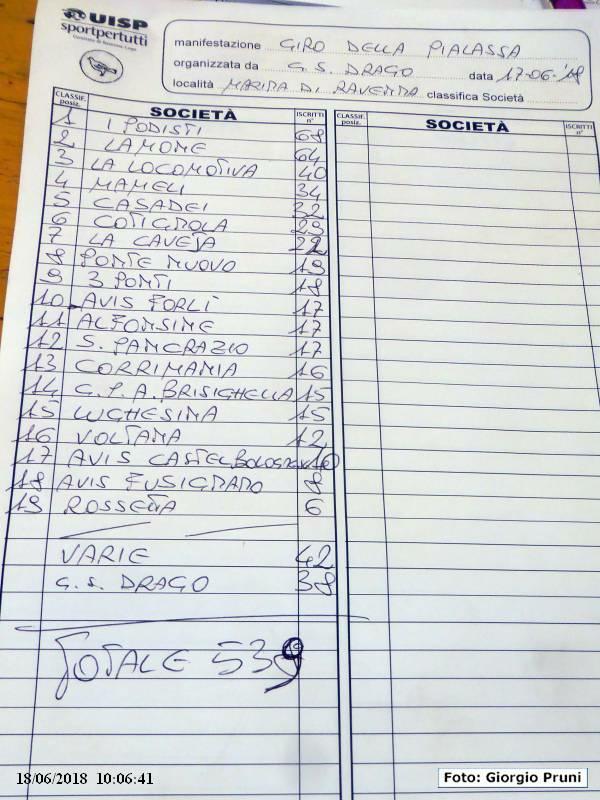 UISP
sportpertutti
manifestazione GIRO DELLA PIALASSA
organizzata da G.S. DRAGO data 17-06-'18
località MARINA DI RAVENNA classifica Società
CLASSIF. posiz. SOCIETÀ ISCRITTI n° CLASSIF. posiz. SOCIETÀ ISCRITTI n°
1 I PODISTI 68
2 LAMONE 64
3 LA LOCOMOTIVA 40
4 MAMELI 34
5 CASADEI 32
6 COTIGNOLA 29
7 LA CAVEJA 22
8 PONTE NUOVO 19
9 3 PONTI 18
10 AVIS FORLÌ 17
11 ALFONSINE 17
12 S. PANCRAZIO 17
13 CORRIMANIA 16
14 G.P.A. BRISIGHELLA 15
15 LUGHESINA 15
16 VOLTANA 12
17 AVIS CASTELBOLOGNESE 10
18 AVIS FUSIGNANO 8
19 ROSSETTA 6
VARIE 42
G.S. DRAGO 38
TOTALE 539
18/06/2018 10:06:41
Foto: Giorgio Pruni